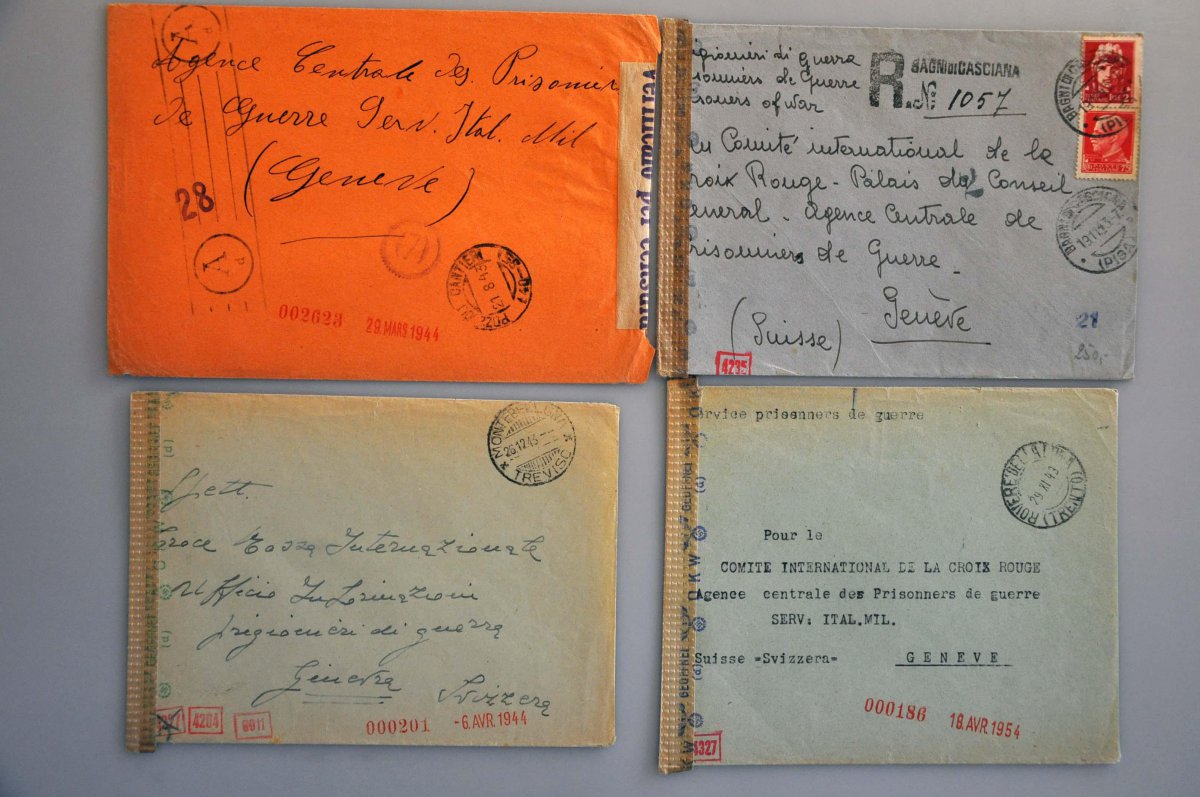 Agence Centrale des Prisonnier
de Guerre Serv. Ital. Mil
(Genevé)
28
A
P
002623 29. MARS 1944
POZZO DI CANTIER
21 8 43
Verificato per censura
rigionieri di guerra
sonniers de Guerre
soners of war
R. BAGNI DI CASCIANA
No 1057
Au Comité international de la
Croix Rouge - Palais du Conseil
General - Agence Centrale de
Prisonniers de Guerre -
Genève
(Suisse)
BAGNI DI CASCIANA
(PISA)
21
250,-
4235
MONTEBELLUNA
26.12.43
TREVISO
Spett.
Croce Rossa Internazionale
Ufficio Informazioni
prigionieri di guerra
Ginevra
Svizzera
4204 6911
000201 -6. AVR. 1944
ervice prisonners de guerre
ROVERE' DELLA LUNA
29 XI 43
(TRENTO)
Pour le
COMITE INTERNATIONAL DE LA CROIX ROUGE
Agence centrale des Prisonners de guerre
SERV: ITAL.MIL.
Suisse =Svizzera= GENEVE
000186 18. AVR. 1954
4327